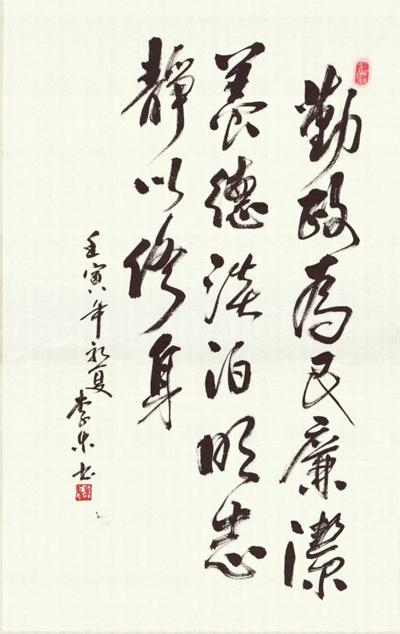 勤政為民廉潔
養德淡泊明志
靜以修身
壬寅年初夏李東书